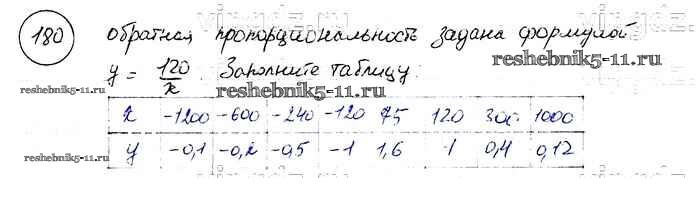 180 обратная пропорциональность задана формулой
y = 120/x. Заполните таблицу:
reshebnik5-11.ru reshebnik5-11.ru
x -1200 -600 -240 -120 75 120 300 1000
y -0,1 -0,2 -0,5 -1 1,6 1 0,4 0,12
reshebnik5-11.ru